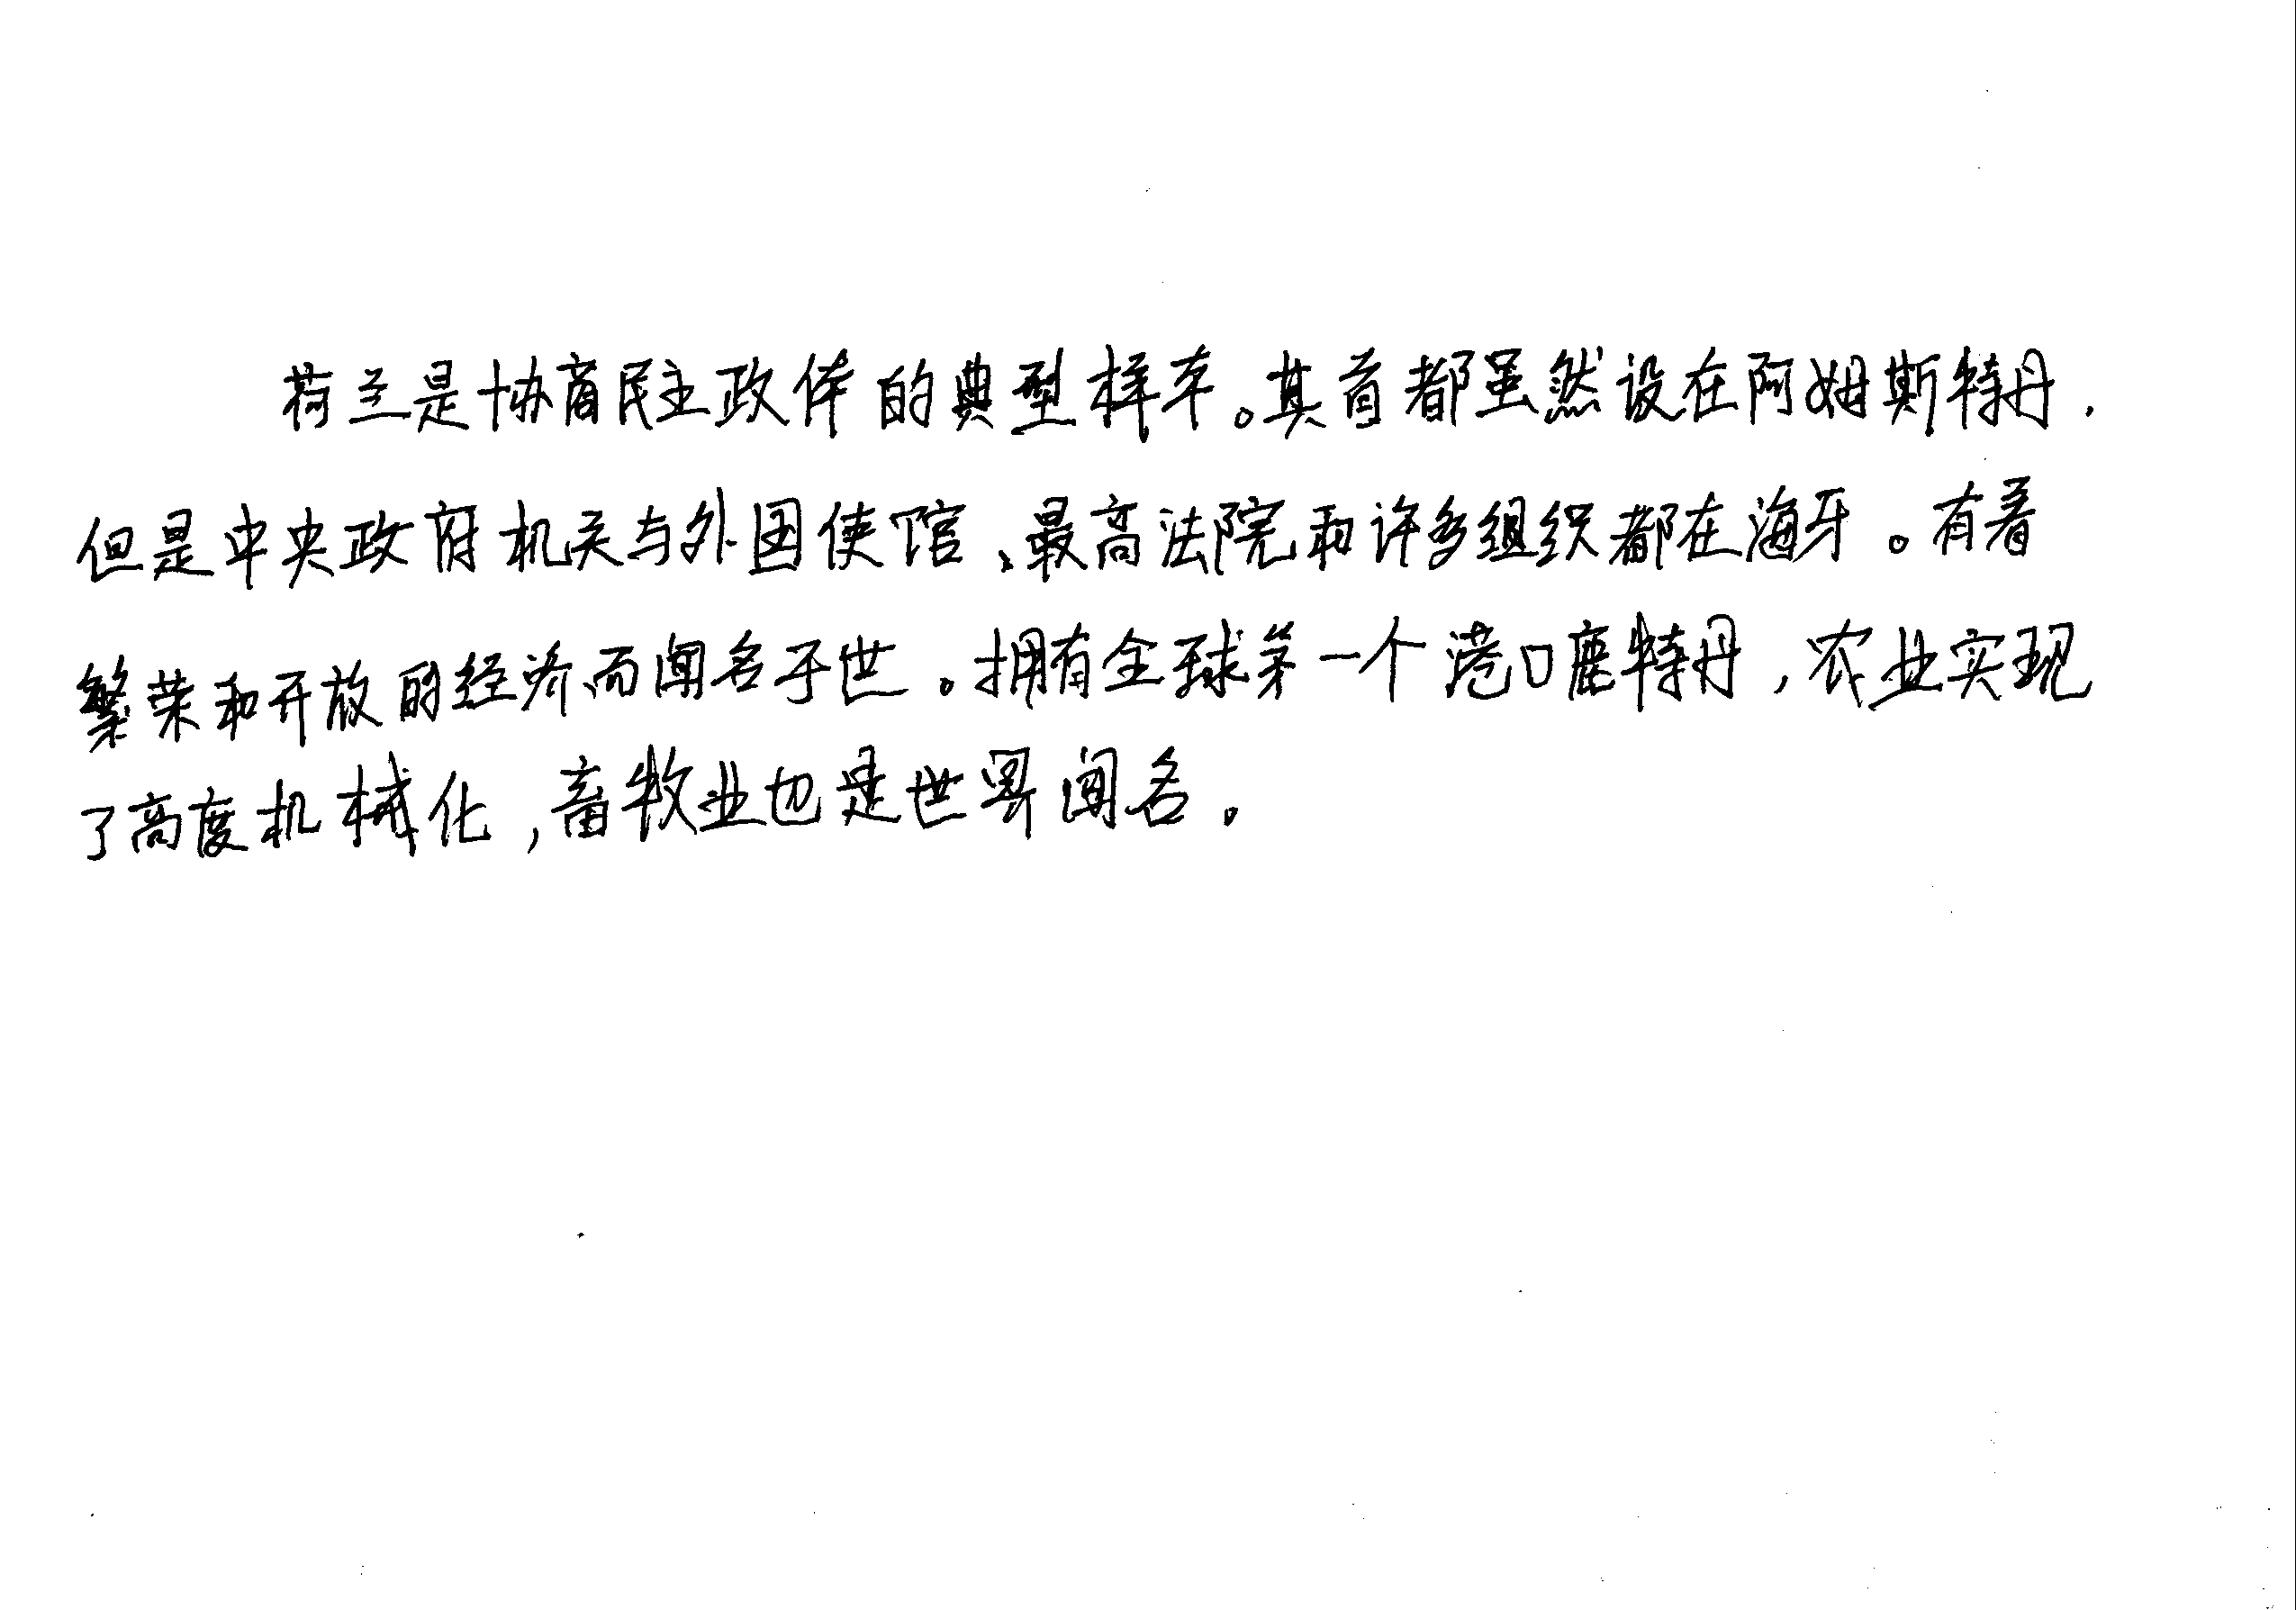 荷兰是协商民主政体的典型样本。其首都虽然设在阿姆斯特丹,
但是中央政府机关与外国使馆、最高法院和许多组织都在海牙。有着
繁荣和开放的经济而闻名于世。拥有全球第一个港口鹿特丹,农业实现
了高度机械化,畜牧业也是世界闻名。